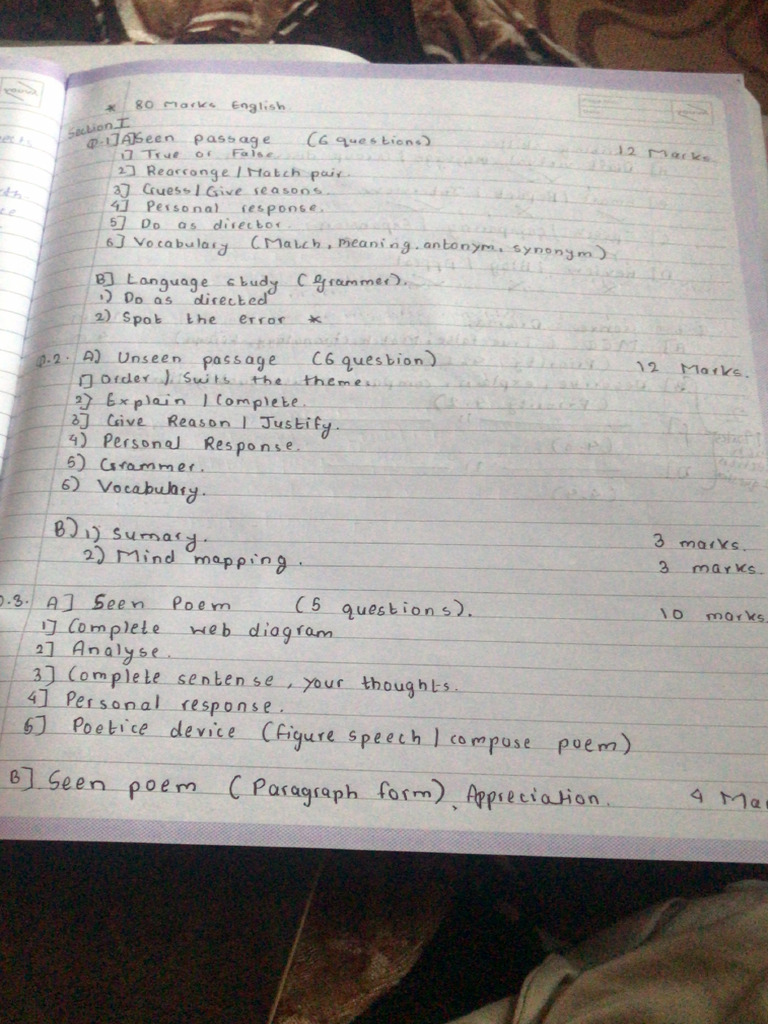 * 80 Marks English
Section I
Q.1] A] Seen passage (6 questions) 12 Marks
1] True or False.
2] Rearrange / Match pair.
3] Guess / Give reasons.
4] Personal response.
5] Do as director.
6] Vocabulary (Match, meaning, antonym, synonym)
B] Language study (Grammer).
1) Do as directed
2) Spot the error *
Q.2. A) Unseen passage (6 question) 12 Marks.
1] Order / Suits the theme.
2] Explain / Complete.
3] Give Reason / Justify.
4) Personal Response.
5) Grammer.
6) Vocabulary.
B) 1) Sumary. 3 marks.
2) Mind mapping. 3 marks.
Q.3. A] Seen Poem (5 questions). 10 marks.
1] Complete web diagram
2] Analyse.
3] Complete sentense, your thoughts.
4] Personal response.
5] Poetice device (figure speech / compose poem)
B] Seen poem (Paragraph form), Appreciation. 4 Ma